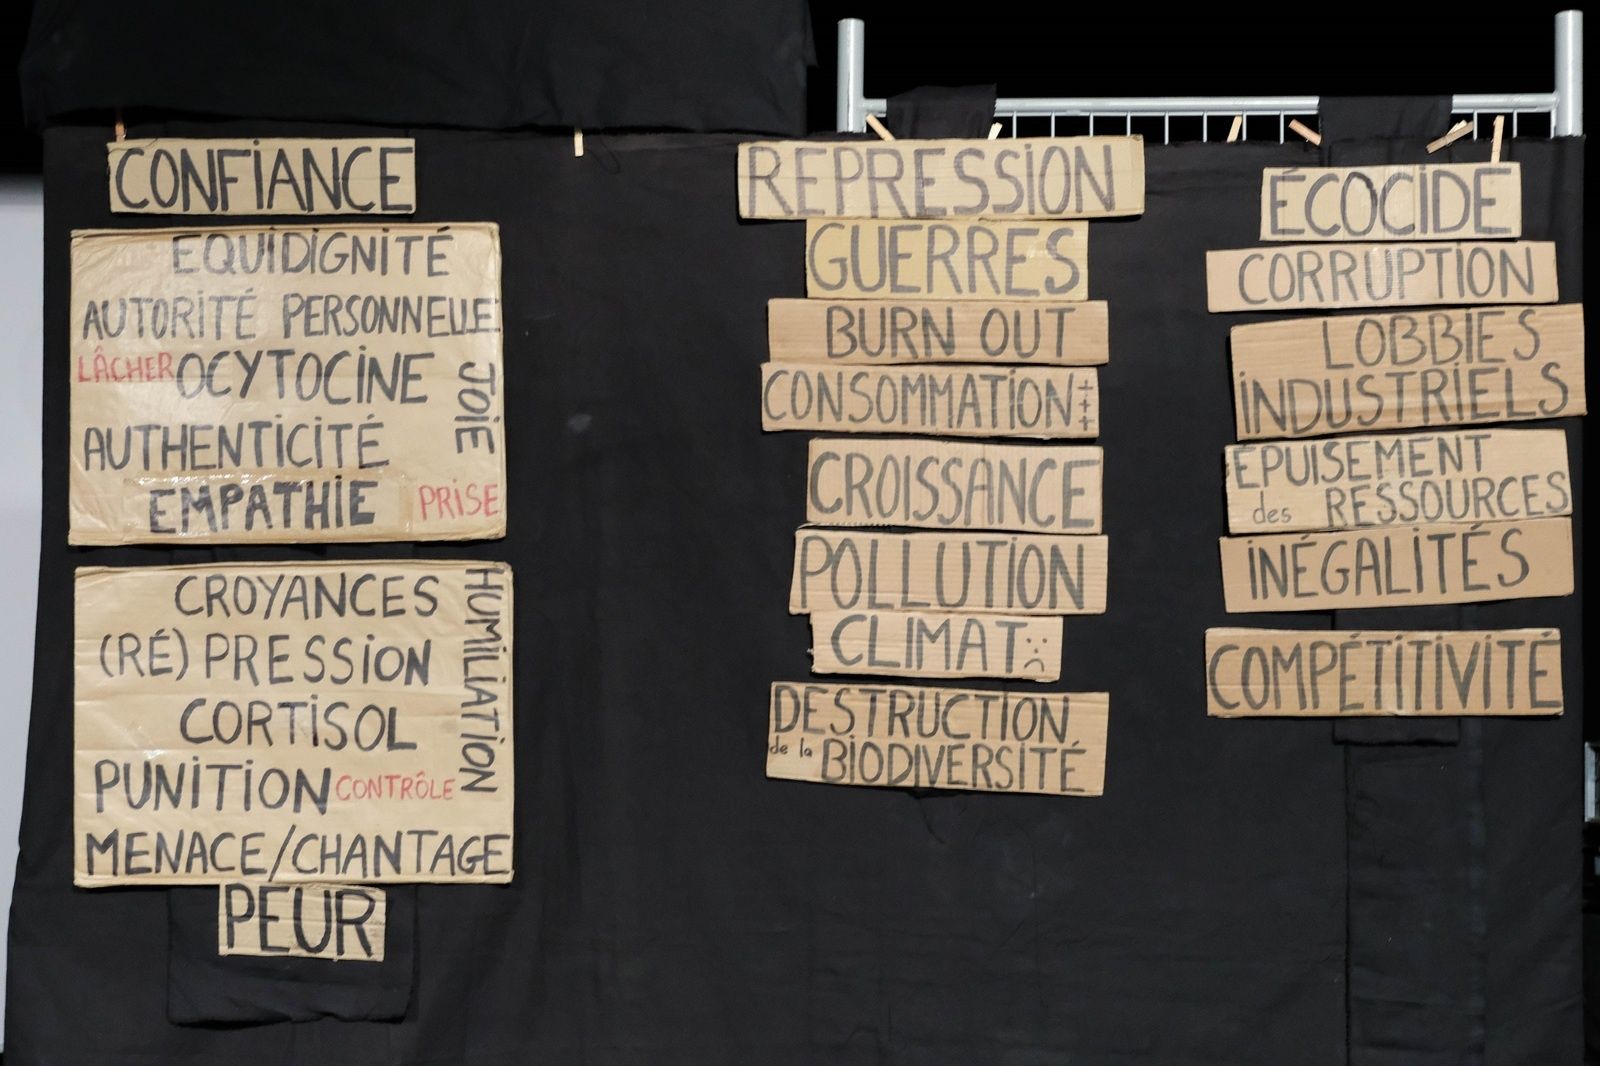 CONFiANCE
EQUiDiGNiTÉ
AUTORiTÉ PERSONNELLE
LÂCHER OCYTOCiNE
JOiE
AUTHENTiCiTÉ
EMPATHiE PRiSE
CROYANCES
(RÉ)PRESSiON
CORTiSOL
HUMiLiATiON
PUNiTiON CONTRÔLE
MENACE/CHANTAGE
PEUR
REPRESSiON
GUERRES
BURN OUT
CONSOMMATiON+++
CROiSSANCE
POLLUTiON
CLiMAT :(
DESTRUCTiON
de la BiODiVERSiTÉ
ÉCOCiDE
CORRUPTiON
LOBBiES
iNDUSTRiELS
ÉPUiSEMENT
des RESSOURCES
iNÉGALiTÉS
COMPÉTiTiViTÉ